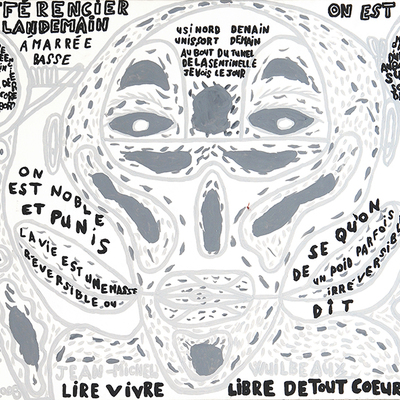 FÉRENCIER
LANDEMAIN
A MARRÉE
BASSE
USINORD DENAIN
UNISSORT DEMAIN
AU BOUT DU TUNEL
DE LA SENTINELLE
JE VOIS LE JOUR
ON EST
ON
EST NOBLE
ET PUNIS
LA VIE EST UNE MASSE
REVERSIBLE OU
SE QUON
DE UN POID PARFOIS
IRREVERSIBLE
DIT
JEAN-MICHEL WUILBEAUX
LIRE VIVRE
LIBRE DE TOUT COEUR